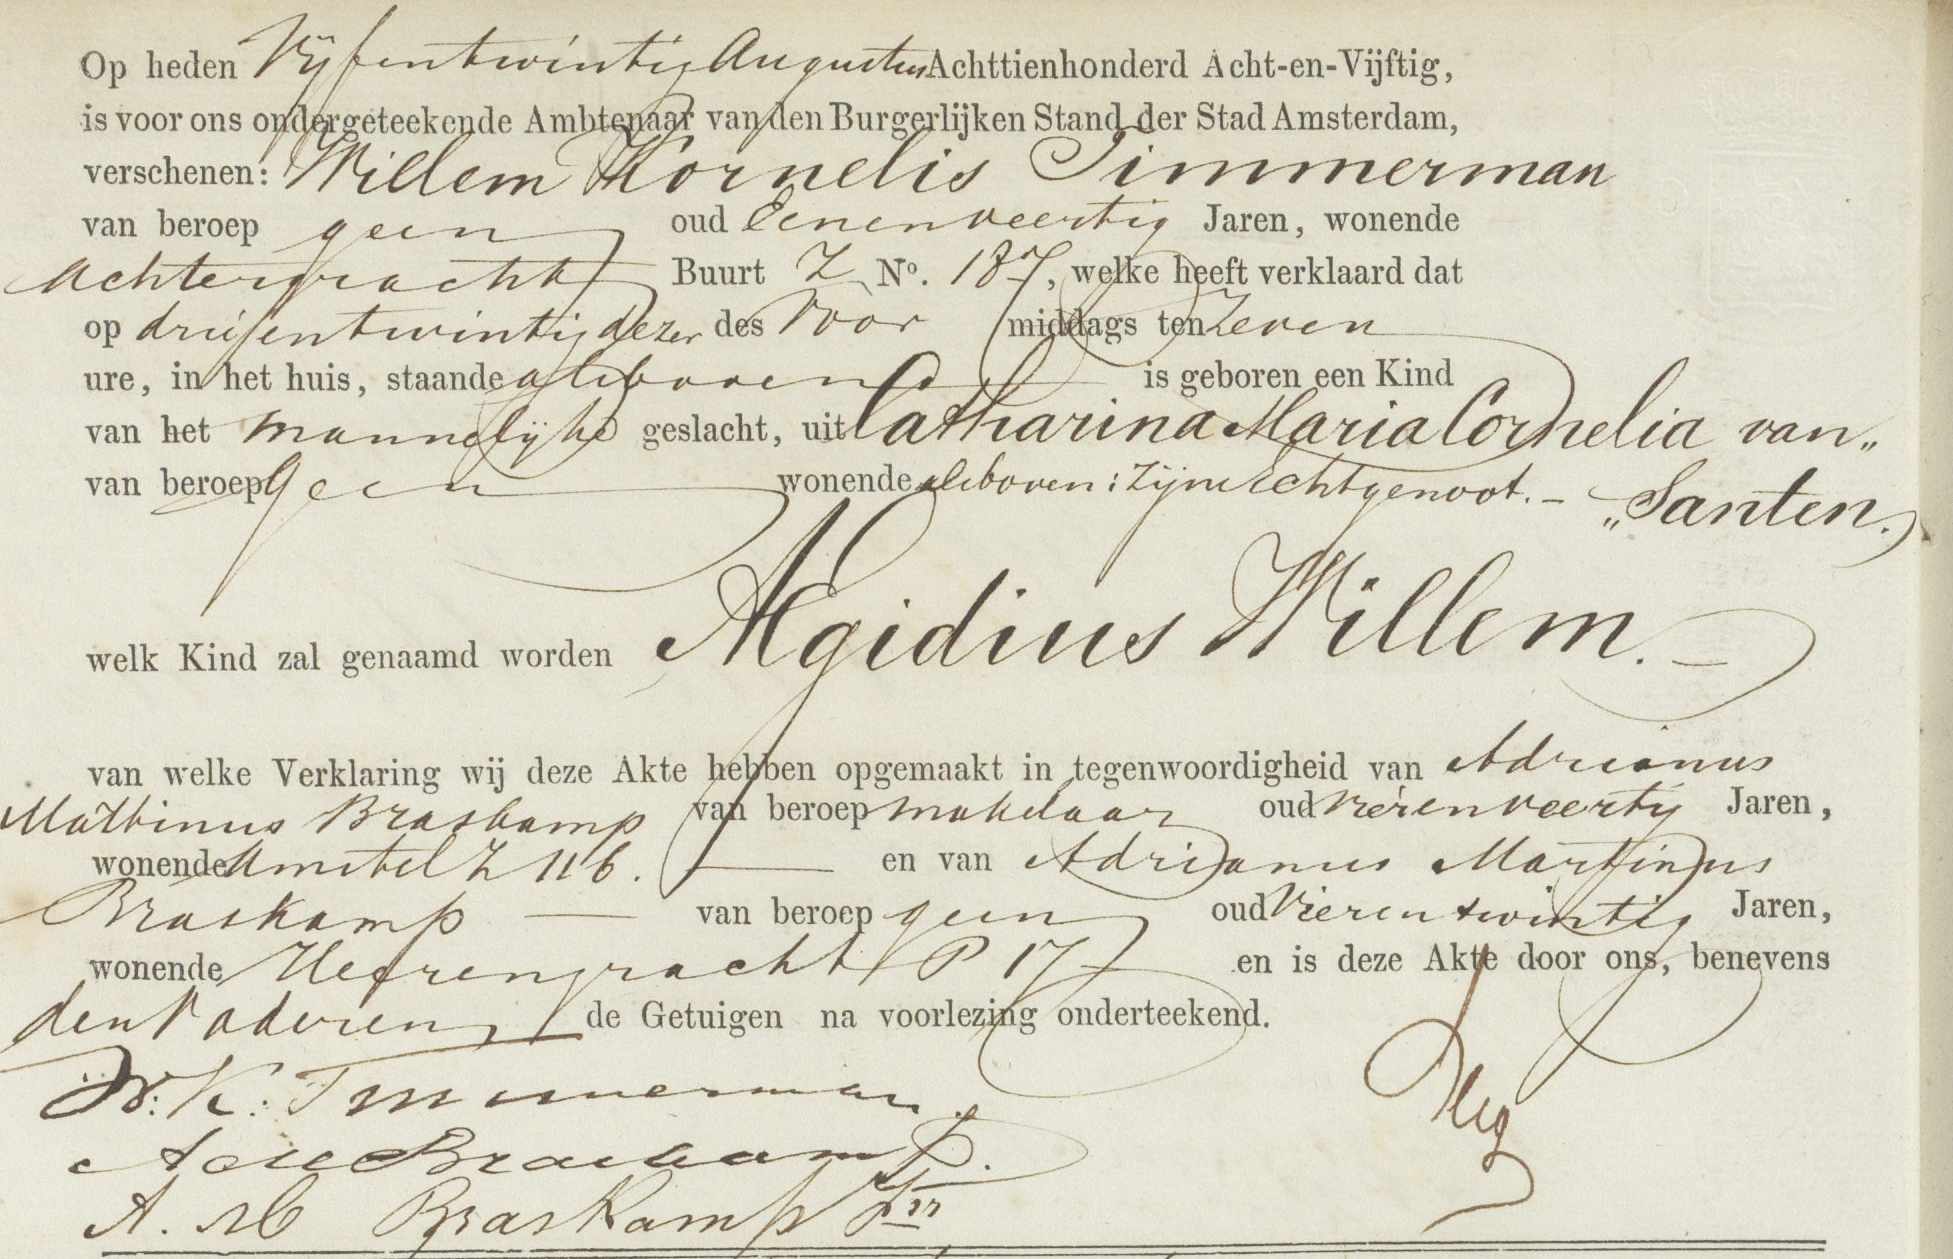 Op heden Vijfentwintig Augustus Achttienhonderd Acht-en-Vijftig,
is voor ons ondergeteekende Ambtenaar van den Burgerlijken Stand der Stad Amsterdam,
verschenen: Willem Kornelis Timmerman
van beroep geen oud Eenenveertig Jaren, wonende
Achtergracht Buurt Z No. 187, welke heeft verklaard dat
op drieentwintig dezer des Voor middags ten Zeven
ure, in het huis, staande alsboven is geboren een Kind
van het mannelijke geslacht, uit Catharina Maria Cornelia van„
van beroep Geen wonende alsboven: Zijne Echtgenoot. – „Santen.
welk Kind zal genaamd worden Ægidius Willem. –
van welke Verklaring wij deze Akte hebben opgemaakt in tegenwoordigheid van Adrianus
Martinus Braskamp van beroep makelaar oud vierenveertig Jaren,
wonende Amstel Z 116. en van Adrianus Martinus
Braskamp — van beroep geen oud Vierentwintig Jaren,
wonende Heerengracht P 17 en is deze Akte door ons, benevens
den Vader en de Getuigen na voorlezing onderteekend.
W: K: Timmerman.
Braskamp.
A. M Braskamp Jnr